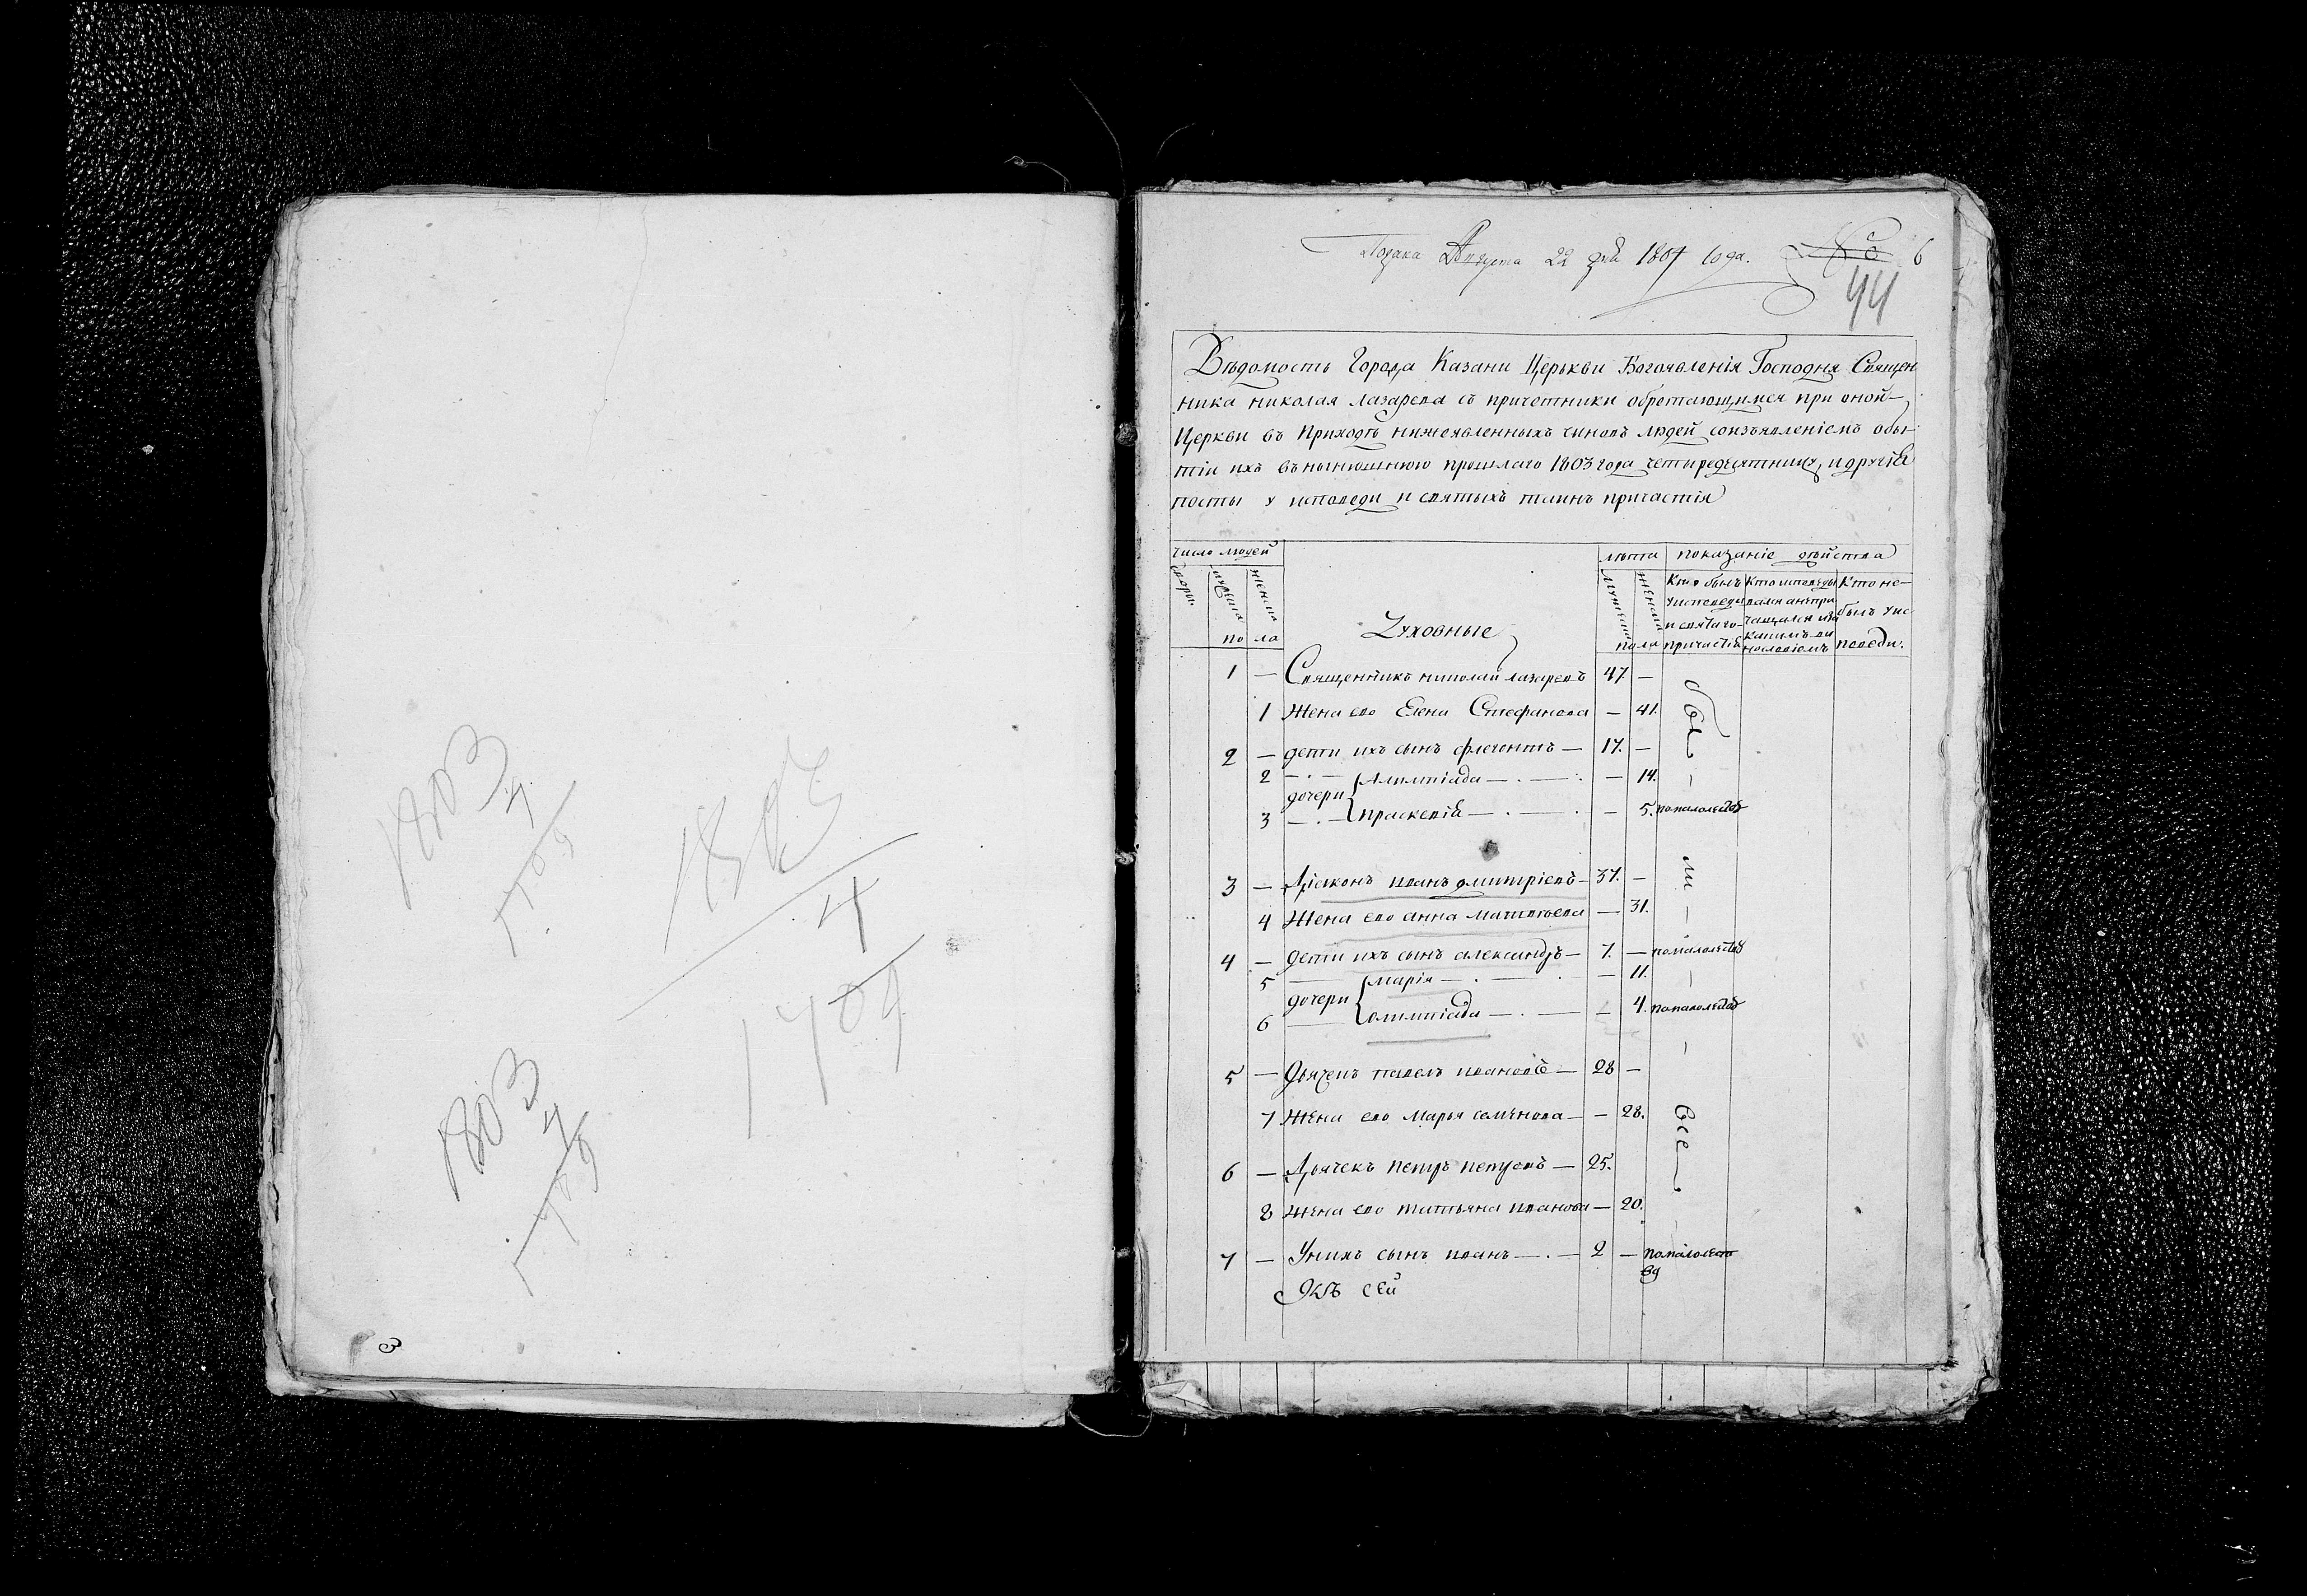 1803
4
1709
1803
4
1709
1803
4
1799
Подана Августа 22 дня 1804 года.
6
44
Вѣдомость Города Казани Церькви Богоявленія Господня Священ
ника николая лазарева съ причетники обретающимися при оной
Церкви въ Приходѣ нижеявленныхъ чиновъ людей соизъявленіемъ обы
тіи ихъ въ нынюшнюю прошлаго 1803 года четыредесятницу и другія
посты у исповеди и святыхъ таинъ причастія
число людей
дворы
мужеска
женска
по ла
Духовные
лѣта
мужеска
женска
пола
показаніе действа
Кто былъ
у исповеди
и святаго
причастія
Кто исповеды
вался а не при
чащался и за
какимъ ви
нословіемъ
Кто не
былъ у ис
поведи.
1 — Священникъ николай лазаревъ 47 —
1 Жена ево Елена Стефанова — 41.
были
2 — дети ихъ сынъ флегонтъ — 17. —
2 дочери Алимпіада — 14.
3 праскевія — 5. помалолетсв
3 — Діаконъ иванъ дмитріевъ 37. —
4 Жена ево анна матвѣева — 31.
4 — дети ихъ сынъ александръ — 7. — помалолетсву
5 дочери марія — 11.
6 олимпіада — 4. помалолетсв
5 — Дьячекъ павелъ ивановъ — 28 —
7 Жена ево Марья семенова — 28.
все
6 — Дьячекъ петръ петровъ — 25.
8 жена ево татьяна иванова — 20.
7 — У нихъ сынъ иванъ — 2 — помалолетс
ву
сей